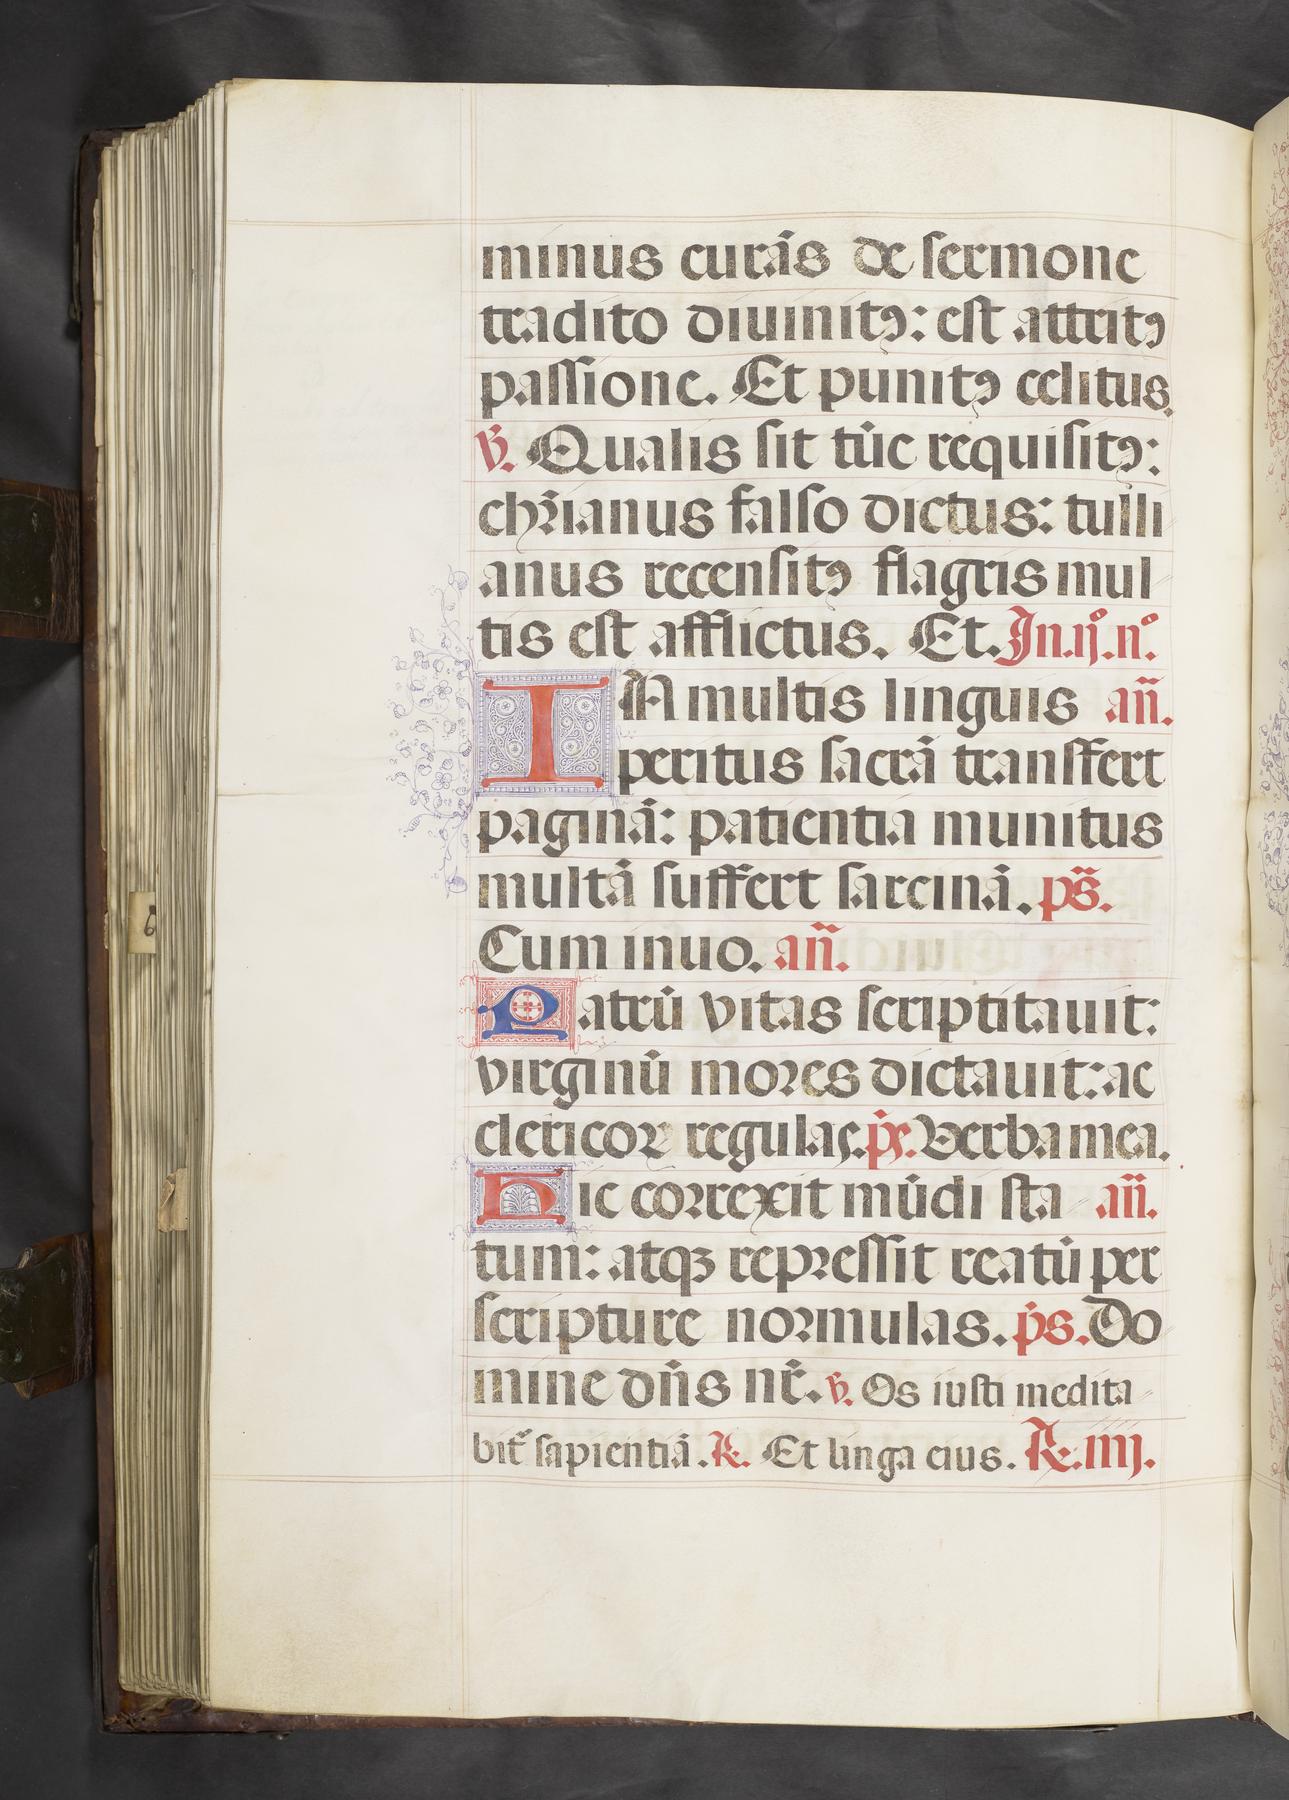 minus curãs de sermone
tradito diuinitꝯ: est attritꝯ
passione. Et punitꝯ celitus.
℣. Qualis sit tūc requisitꝯ:
chr̃ianus falso dictus: tulli
anus recensitꝯ flagris mul
tis est afflictus. Et. Jn.ij°.n°.
IN multis linguis añ.
peritus sacrã transffert
paginã: patientia munitus
multã suffert sarcinã. ps̃.
Cum inuo. añ.
Patrū vitas scriptitauit:
virginū mores dictauit: ac
clericoꝝ regulas. ps̃. Verba mea.
Hic correxit mūdi sta añ.
tum: atqꝫ repressit reatū per
scripture normulas. ps̃. Do
mine dñs nr̃. ℣. Os iusti medita
bit̃ sapientiã. ℟. Et linga eius. ℟. iiij.
6